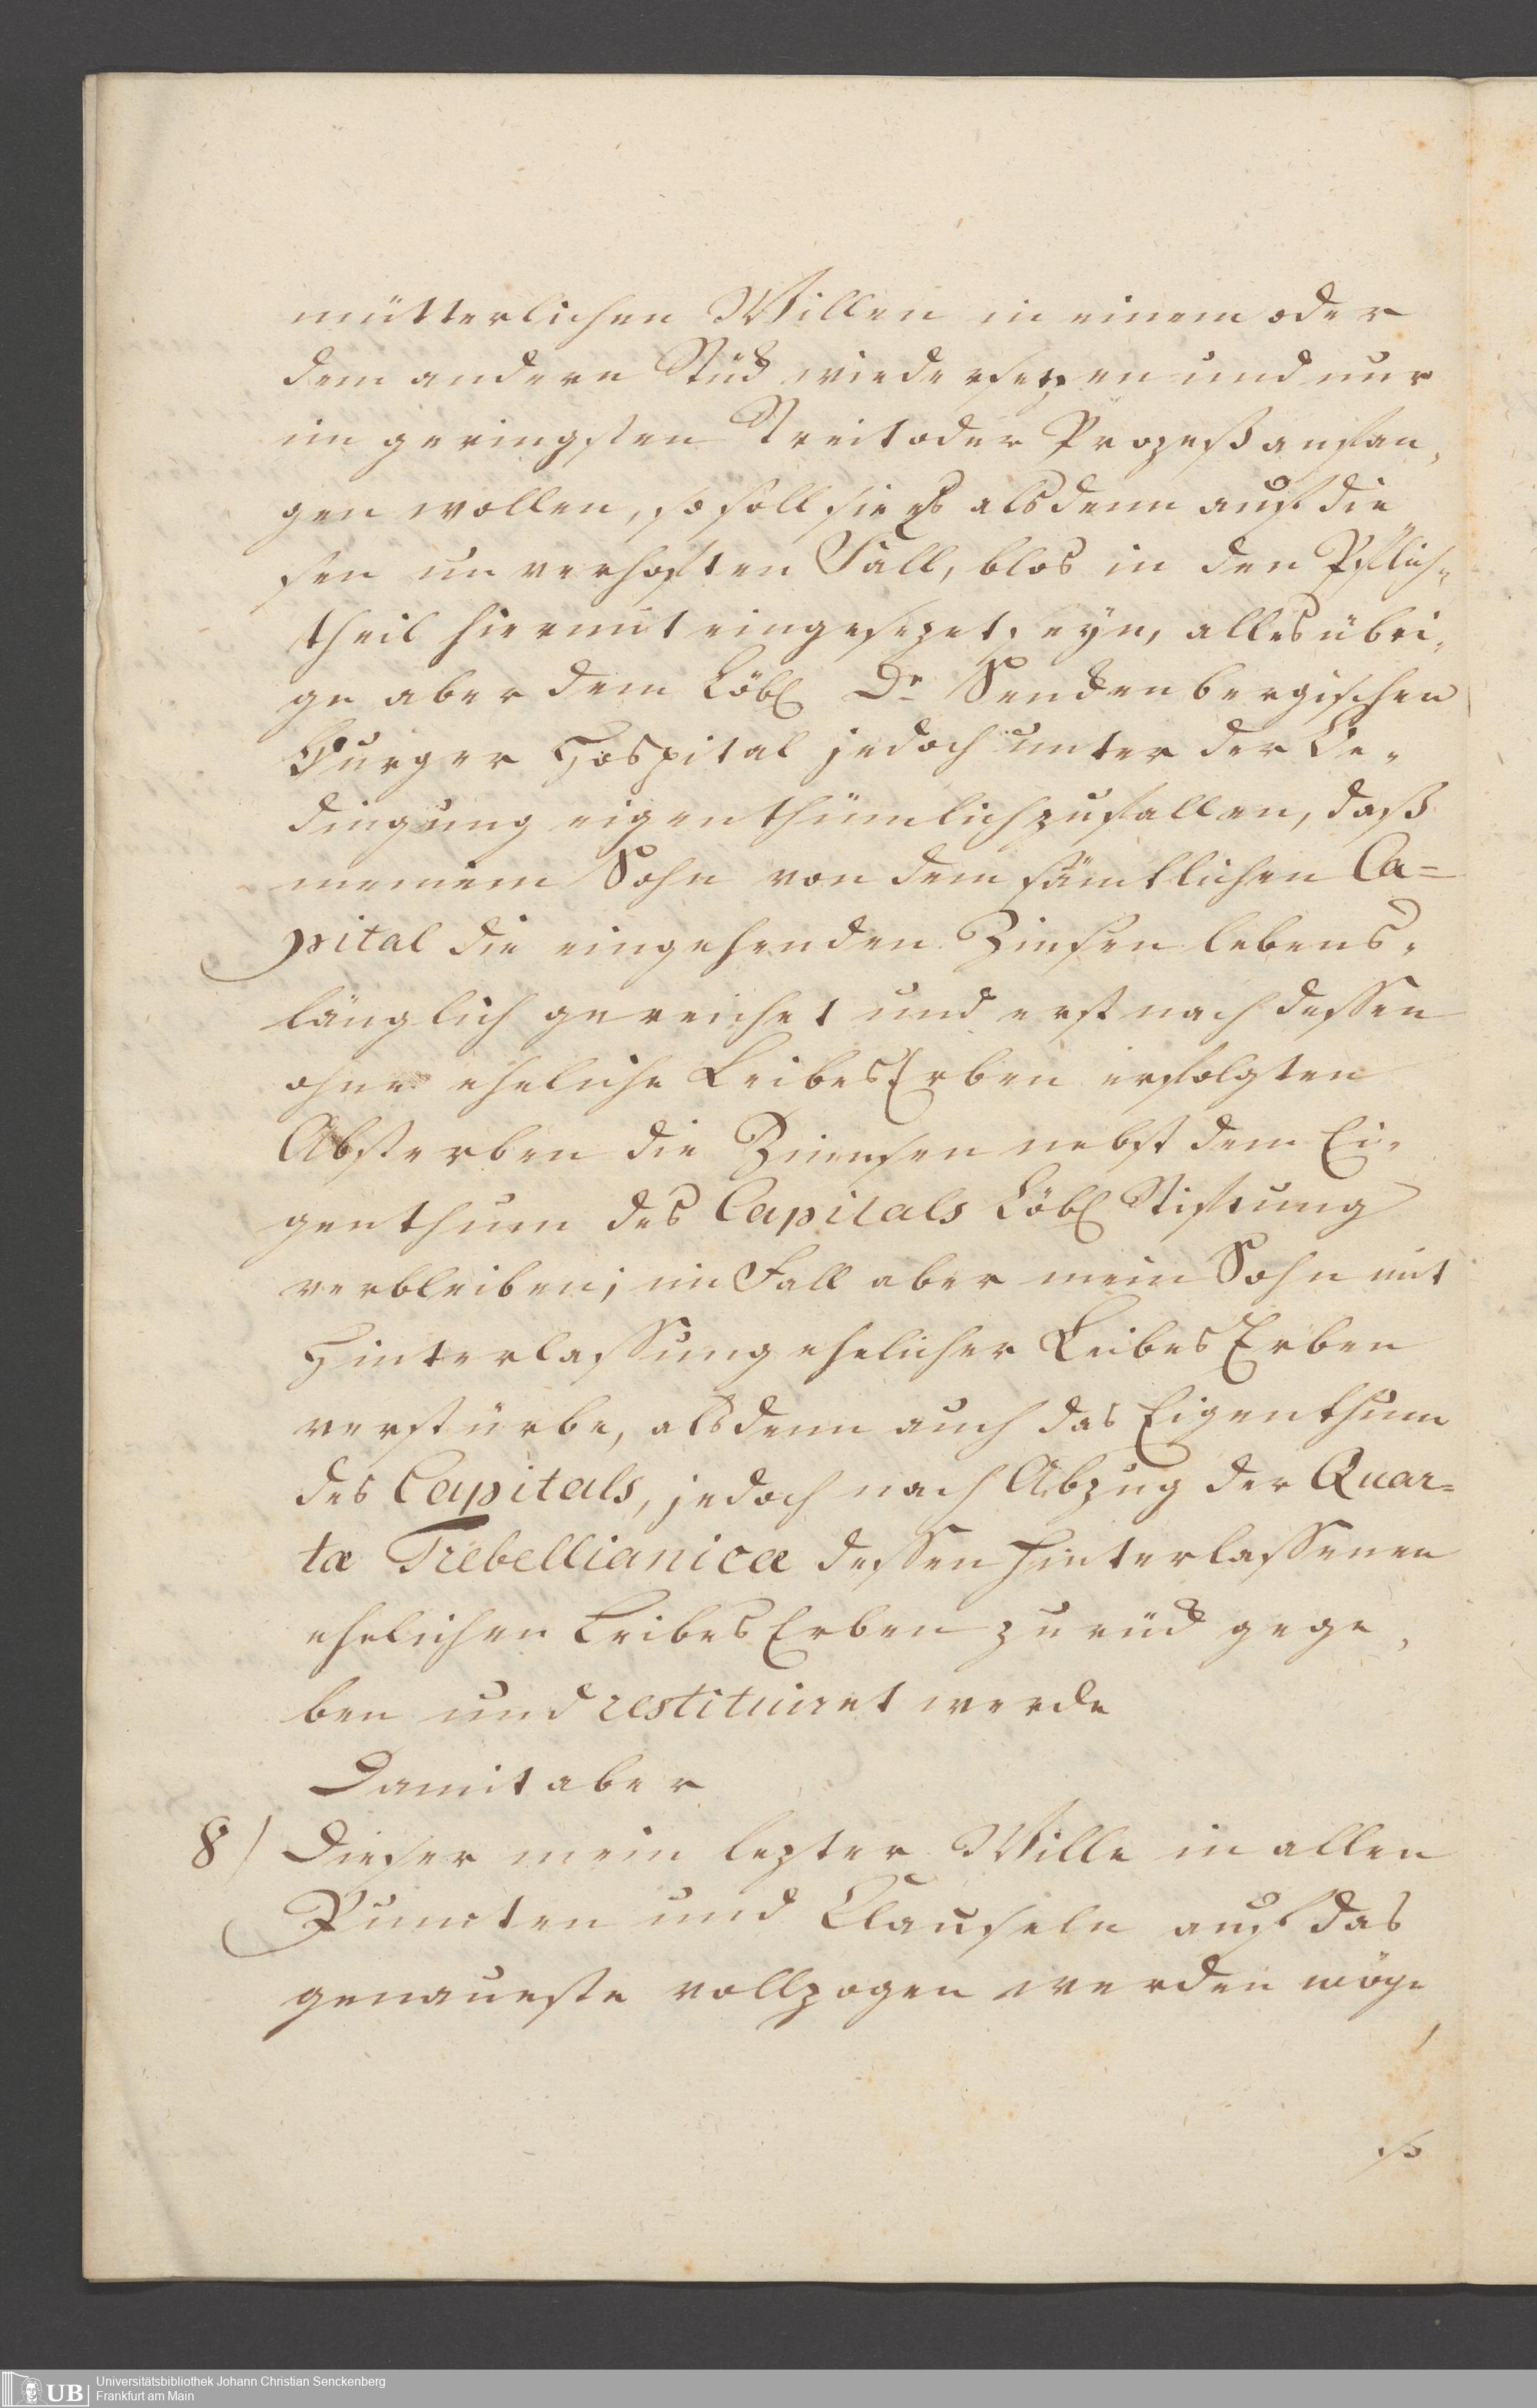 mütterlichen Willen in einem oder
dem andern Stück wiedersetzen und nur
im geringsten Streit oder Prozeß anfan,
gen wollen, so soll sie alsdenn auf die
sen unverhoften Fall, blos in den Pflich,
theil hiermit eingesezet seyn, alles übri,
ge aber dem Löbl Dr Senckenbergischen
Burger Hospital jedoch unter der Be,
dingung eigenthümlich zufallen, daß
meinem Sohn von dem sämtlichen Ca=
pital die eingehenden Zinsen lebens,
länglich gereichet und erst nach dessen
ohne eheliche Leibes Erben erfolgten
Absterben die Zinnsen nebst dem Ei,
genthum des Capitals Löbl Stiftung
verbleiben; im Fall aber mein Sohn mit
Hinterlassung ehelicher Leibes Erben
verstürbe, alsdenn auch das Eigenthum
des Capitals, jedoch nach Abzug der Quar=
tæ Trebellianicæ dessen hinterlassenen
ehelichen Leibes Erben zurück gege,
ben und restituiret werde
Damit aber
8/ Dieser mein lezter Wille in allen
Puncten und Clauseln auf das
genaueste vollzogen werden möge
,
so
Universitätsbibliothek Johann Christian Senckenberg
Frankfurt am Main
UB